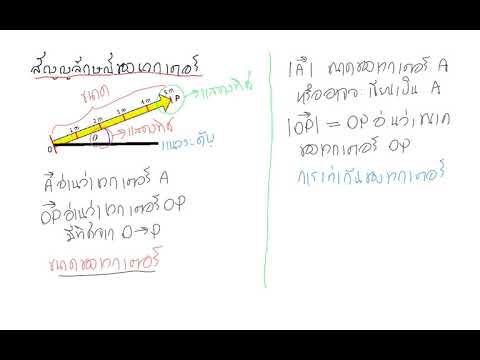 สัญญลักษณ์ของเวกเตอร์
ขนาด
แสดงทิศ
1 m
2 m
3 m
4 m
5 m
P
O
θ
แสดงทิศ
แนวระดับ
A⃗ อ่านว่า เวกเตอร์ A
OP⃗ อ่านว่า เวกเตอร์ OP
มีทิศจาก O→P
ขนาดของเวกเตอร์
|A⃗| ขนาดของเวกเตอร์ A
หรืออาจจะเขียนเป็น A
|OP⃗| = OP อ่านว่าขนาด
ของเวกเตอร์ OP
การเท่ากันของเวกเตอร์